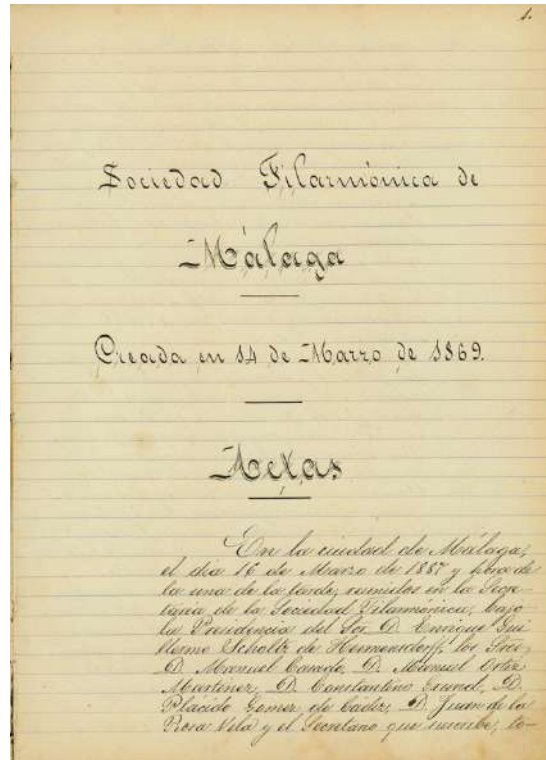 1.
Sociedad Filarmónica de
Málaga
Creada en 14 de Marzo de 1869.
Actas
En la ciudad de Málaga,
el dia 16 de Marzo de 1887 y hora de
la una de la tarde, reunidos en la Secre-
taria de la Sociedad Filarmónica, bajo
la Presidencia del Sor. D. Enrique Gui
llermo Scholtz de Hermensdorff, los Sres.
D. Manuel Casado, D. Manuel Ortiz
Martinez, D. Constantino Grund, D.
Placido Gomez de Cadiz, D. Juan de la
Rosa Vila y el Secretario que suscribe, to-